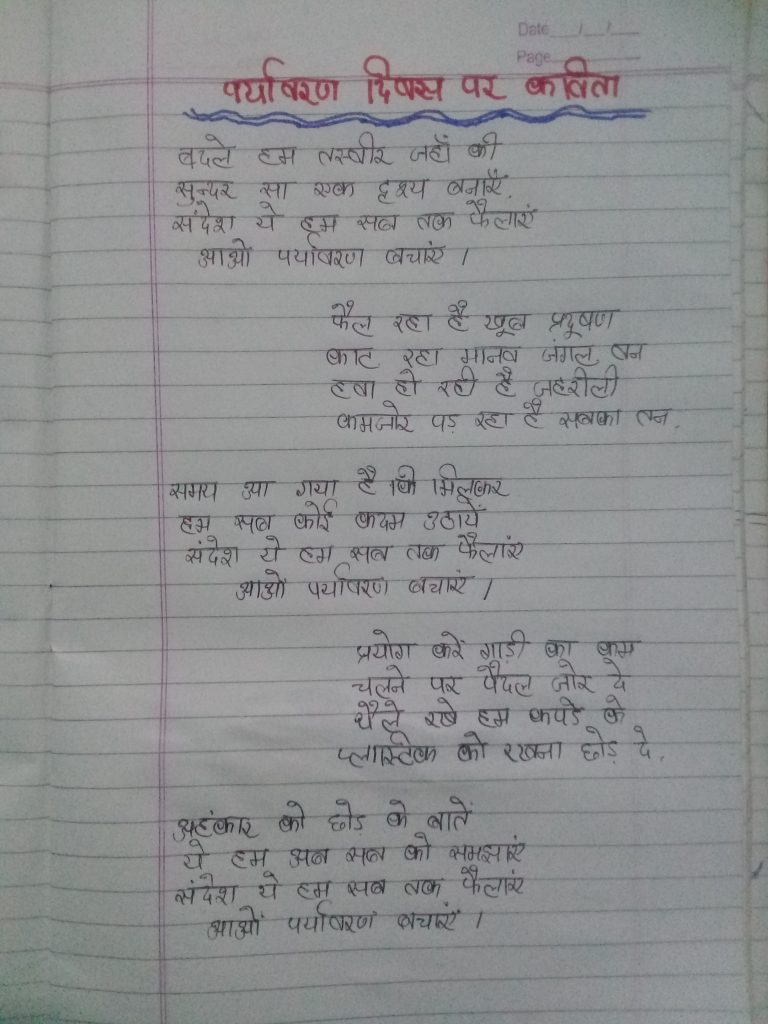 Date __/__/__
Page
पर्यावरण दिवस पर कविता
बदले हम तस्वीर जहाँ की
सुन्दर सा एक दृश्य बनाएँ,
संदेश ये हम सब तक फैलाएं
आओं पर्यावरण बचाएं ।
फैल रहा है खूब प्रदूषण
काट रहा मानव जंगल, वन
हवा हो रही है जहरीली
कमजोर पड़ रहा है सबका तन,
समय आ गया है कि मिलकर
हम सब कोई कदम उठायें
संदेश ये हम सब तक फैलाएं
आओं पर्यावरण बचाएं ।
प्रयोग करें गाड़ी का कम
चलने पर पैदल जोर दे
थैले रखे हम कपडे के
प्लास्टिक को रखना छोड़ दे,
अहंकार को छोड़ के बातें
ये हम अब सब को समझाएं
संदेश ये हम सब तक फैलाएं
आओं पर्यावरण बचाएं ।